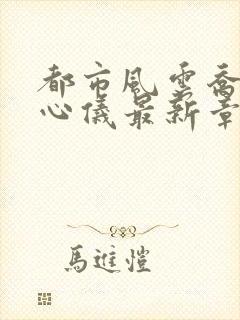 都市風雲喬
心儀最新章
馬進愷